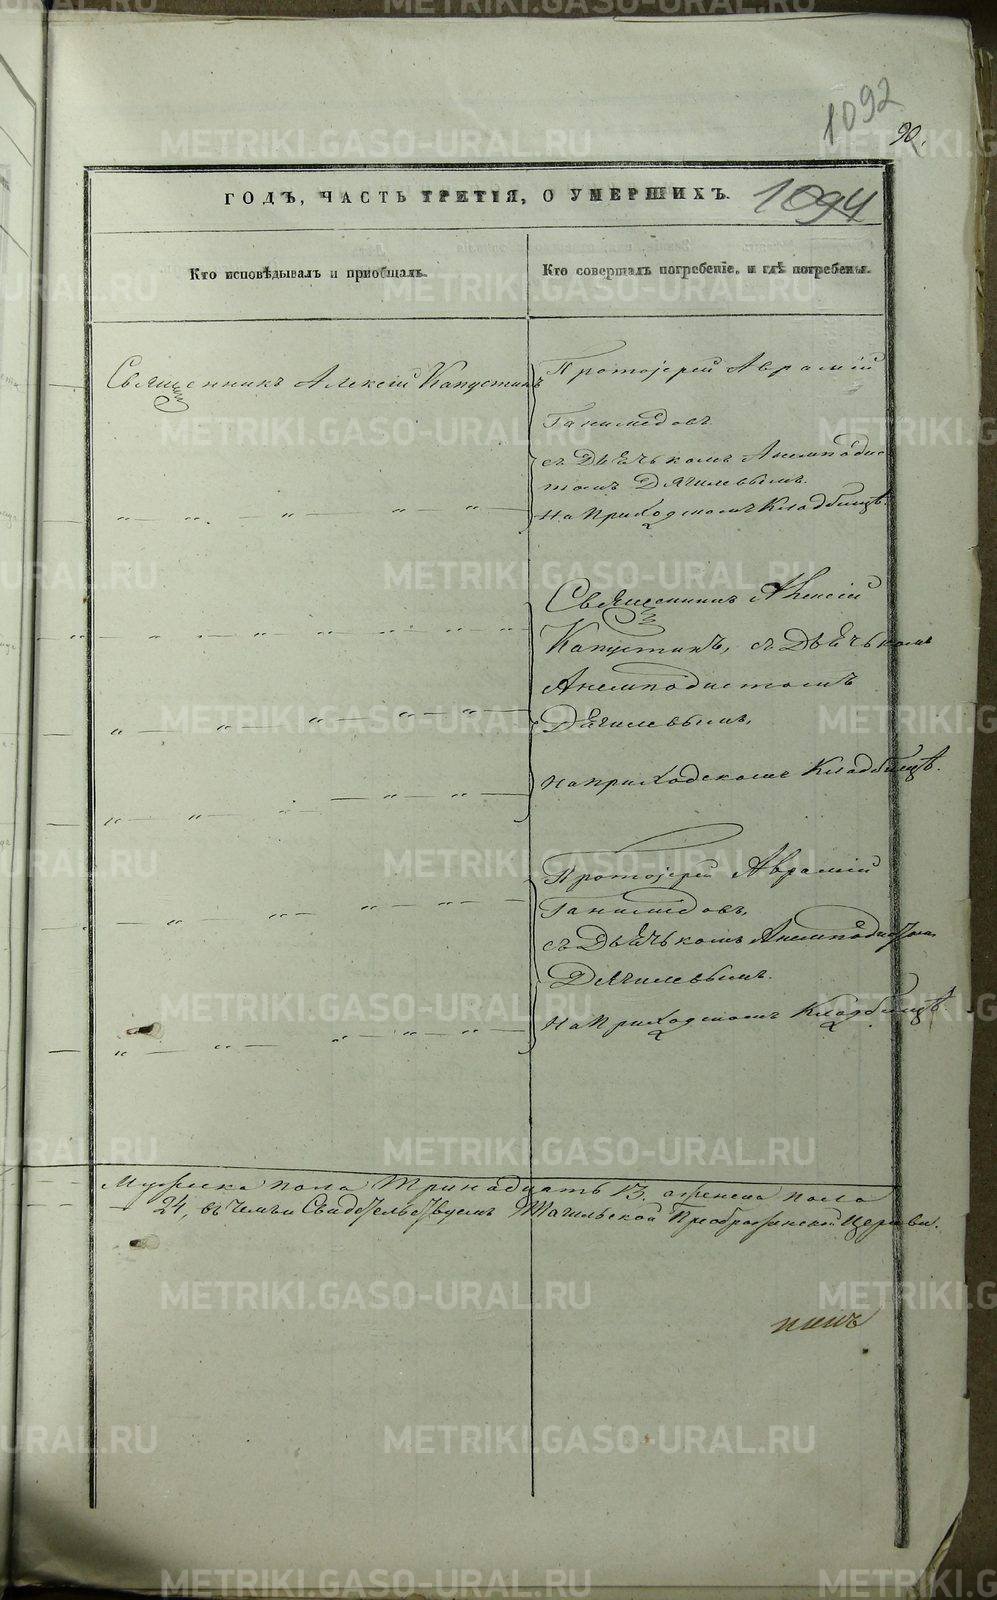 1092
90.
ГОДЪ, ЧАСТЬ ТРЕТІЯ, О УМЕРШИХЪ.
1094
Кто исповѣдывалъ и пріобщалъ.
Кто совершалъ погребеніе, и гдѣ погребены.
Священникъ Алексій Капустинъ
Протоіерей Аврамій
Ганимедовъ
съ Дьячькомъ Анемподис
томъ Дягилевымъ.
На Приходскомъ Кладбищѣ.
Священникъ Алексій
Капустинъ, съ Дьячькомъ
Анемподистомъ
Дягилевымъ,
на приходскомъ Кладбищѣ.
Протоіерей Аврамій
Ганимедовъ,
съ Дьячькомъ Анемподистом
Дягилевымъ.
На Приходскомъ Кладбищѣ.
Мужеска пола Тринадцать 13. а женска пола
24, въ чемъ и Свидетельствуемъ Тагильской Преображенской Церкви.
METRIKI.GASO-URAL.RU